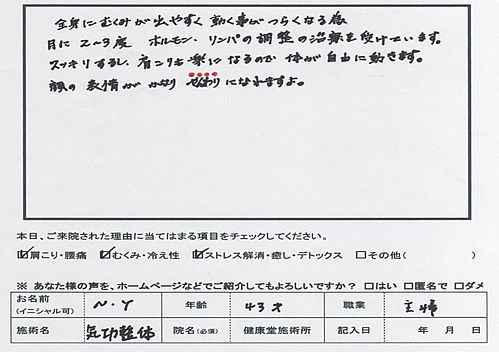 全身にむくみが出やすく 動く事がつらくなる為
月に2〜3度 ホルモン・リンパの調整の治療を受けています。
スッキリするし、肩こりも楽になるので 体が自由に動きます。
顔の表情が かなり やんわりになれますよ。
本日、ご来院された理由に当てはまる項目をチェックしてください。
☑肩こり・腰痛 ☑むくみ・冷え性 ☑ストレス解消・癒し・デトックス □その他( )
※ あなた様の声を、ホームページなどでご紹介してもよろしいですか? □はい □匿名で □ダメ
お名前(イニシャル可) N・Y 年齢 43才 職業 主婦
施術名 気功整体 院名(必須) 健康堂施術所 記入日 年 月 日